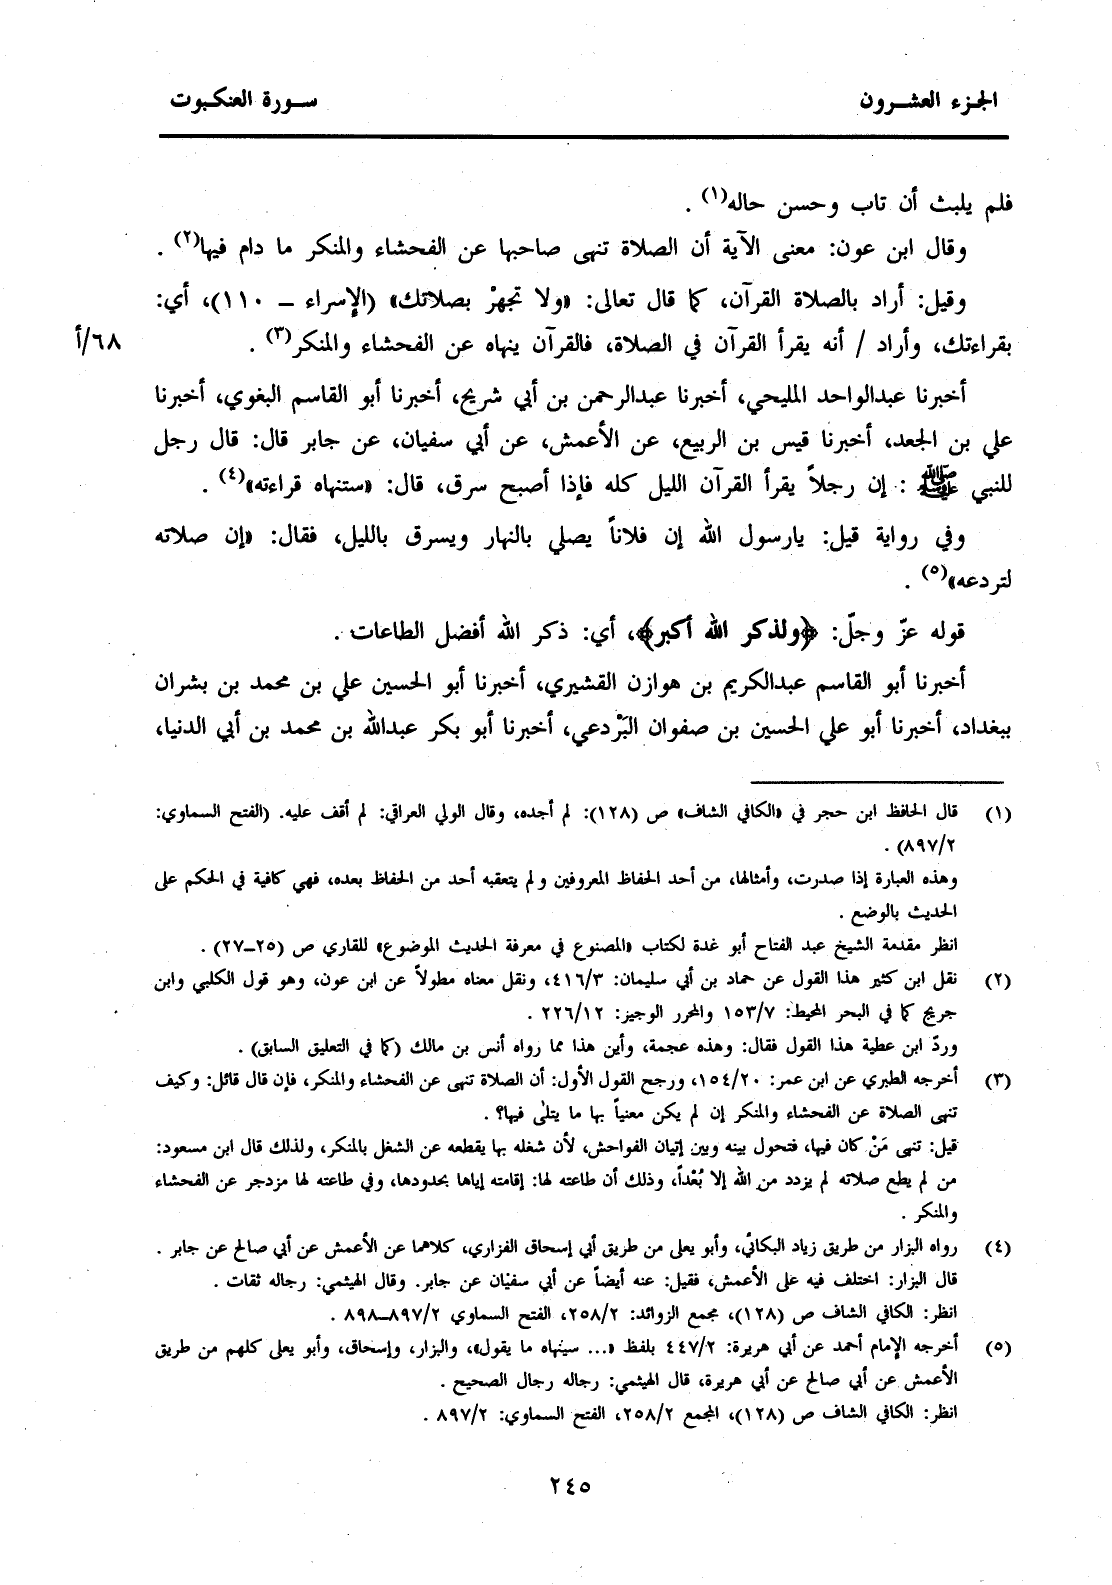 الجزء العشرون
سورة العنكبوت
فلم يلبث أن تاب وحسن حاله(١) .
وقال ابن عون: معنى الآية أن الصلاة تنهى صاحبها عن الفحشاء والمنكر ما دام فيها(٢) .
وقيل: أراد بالصلاة القرآن، كما قال تعالى: «ولا تجهرْ بصلاتك» (الإسراء ــ ١١٠)، أي:
بقراءتك، وأراد / أنه يقرأ القرآن في الصلاة، فالقرآن ينهاه عن الفحشاء والمنكر(٣) .
٦٨/أ
أخبرنا عبدالواحد المليحي، أخبرنا عبدالرحمن بن أبي شريح، أخبرنا أبو القاسم البغوي، أخبرنا
علي بن الجعد، أخبرنا قيس بن الربيع، عن الأعمش، عن أبي سفيان، عن جابر قال: قال رجل
للنبي ﷺ : إن رجلاً يقرأ القرآن الليل كله فإذا أصبح سرق، قال: «ستنهاه قراءته»(٤) .
وفي رواية قيل: يارسول الله إن فلاناً يصلي بالنهار ويسرق بالليل، فقال: «إن صلاته
لتردعه»(٥) .
قوله عزّ وجلّ: ﴿ولذكر الله أكبر﴾، أي: ذكر الله أفضل الطاعات .
أخبرنا أبو القاسم عبدالكريم بن هوازن القشيري، أخبرنا أبو الحسين علي بن محمد بن بشران
ببغداد، أخبرنا أبو علي الحسين بن صفوان البَرْدعي، أخبرنا أبو بكر عبدالله بن محمد بن أبي الدنيا،
(١) قال الحافظ ابن حجر في «الكافي الشاف» ص (١٢٨): لم أجده، وقال الولي العراقي: لم أقف عليه. (الفتح السماوي:
٨٩٧/٢) .
وهذه العبارة إذا صدرت، وأمثالها، من أحد الحفاظ المعروفين ولم يتعقبه أحد من الحفاظ بعده، فهي كافية في الحكم على
الحديث بالوضع .
انظر مقدمة الشيخ عبد الفتاح أبو غدة لكتاب «المصنوع في معرفة الحديث الموضوع» للقاري ص (٢٥ــ٢٧) .
(٢) نقل ابن كثير هذا القول عن حماد بن أبي سليمان: ٤١٦/٣، ونقل معناه مطولاً عن ابن عون، وهو قول الكلبي وابن
جريج كما في البحر المحيط: ١٥٣/٧ والمحرر الوجيز: ٢٢٦/١٢ .
وردّ ابن عطية هذا القول فقال: وهذه عجمة، وأين هذا مما رواه أنس بن مالك (كما في التعليق السابق) .
(٣) أخرجه الطبري عن ابن عمر: ١٥٤/٢٠، ورجح القول الأول: أن الصلاة تنهى عن الفحشاء والمنكر، فإن قال قائل: وكيف
تنهى الصلاة عن الفحشاء والمنكر إن لم يكن معنياً بها ما يتلى فيها؟ .
قيل: تنهى مَنْ كان فيها، فتحول بينه وبين إتيان الفواحش، لأن شغله بها يقطعه عن الشغل بالمنكر، ولذلك قال ابن مسعود:
من لم يطع صلاته لم يزدد من الله إلا بُعْداً، وذلك أن طاعته لها: إقامته إياها بحدودها، وفي طاعته لها مزدجر عن الفحشاء
والمنكر .
(٤) رواه البزار من طريق زياد البكائي، وأبو يعلى من طريق أبي إسحاق الفزاري، كلاهما عن الأعمش عن أبي صالح عن جابر .
قال البزار: اختلف فيه على الأعمش، فقيل: عنه أيضاً عن أبي سفيان عن جابر. وقال الهيثمي: رجاله ثقات .
انظر: الكافي الشاف ص (١٢٨)، مجمع الزوائد: ٢٥٨/٢، الفتح السماوي ٨٩٧/٢ــ٨٩٨ .
(٥) أخرجه الإمام أحمد عن أبي هريرة: ٤٤٧/٢ بلفظ «... سينهاه ما يقول»، والبزار، وإسحاق، وأبو يعلى كلهم من طريق
الأعمش عن أبي صالح عن أبي هريرة، قال الهيثمي: رجاله رجال الصحيح .
انظر: الكافي الشاف ص (١٢٨)، المجمع ٢٥٨/٢، الفتح السماوي: ٨٩٧/٢ .
٢٤٥